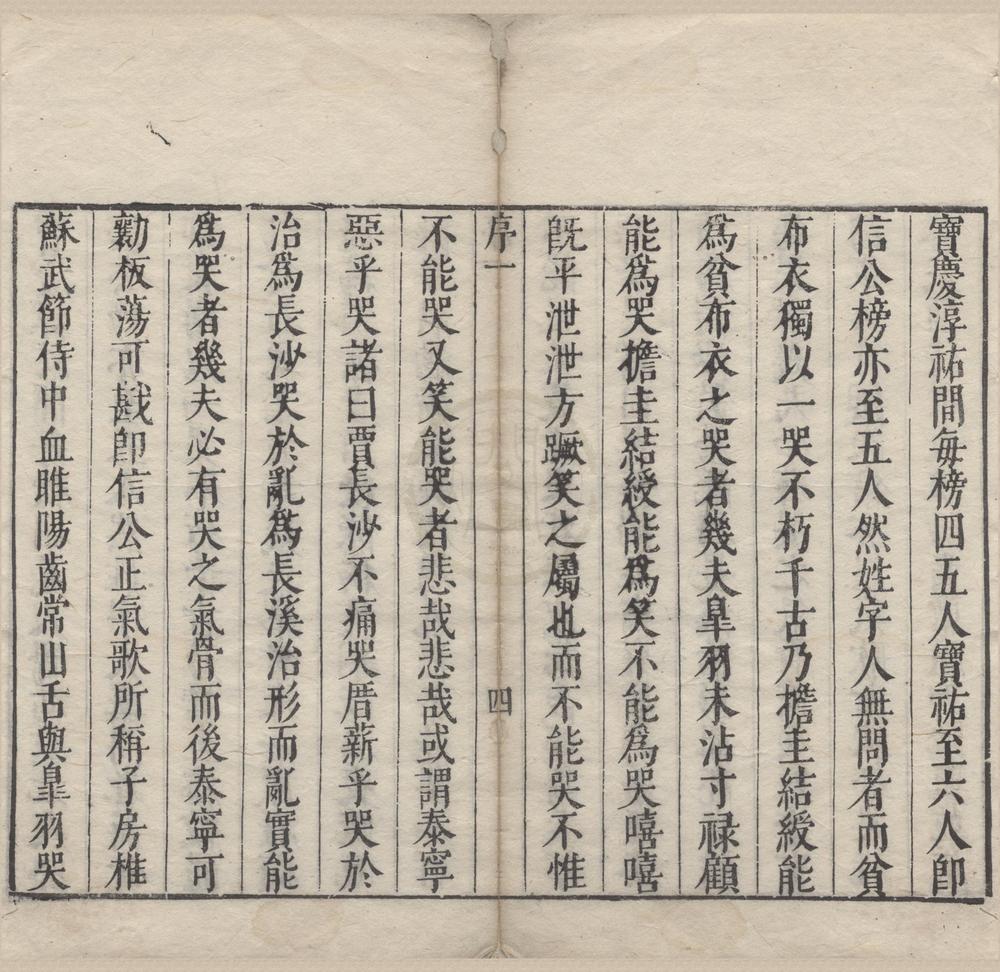 寶慶淳祐間每榜四五人寶祐至六人卽
信公榜亦至五人然姓字人無問者而貧
布衣獨以一哭不朽千古乃擔圭結綬能
爲貧布衣之哭者幾夫臯羽未沾寸祿顧
能爲哭擔圭結綬能爲笑不能爲哭嘻嘻
旣平泄泄方蹶笑之屬也而不能哭不惟
序一 四
不能哭又笑能哭者悲哉悲哉或謂泰寧
惡乎哭諸曰賈長沙不痛哭厝薪乎哭於
治爲長沙哭於亂爲長溪治形而亂實能
爲哭者幾夫必有哭之氣骨而後泰寧可
勷板蕩可戡卽信公正氣歌所稱子房椎
蘇武節侍中血睢陽齒常山舌與臯羽哭